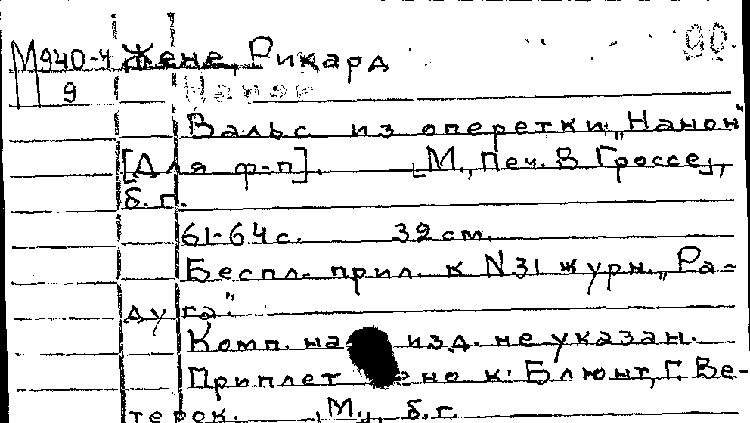 М940-4 Жене, Рикард 90.
9 Нанон
Вальс из оперетки „Нанон"
[Для ф-п]. [М., Печ. В. Гроссе],
б. г.
61-64 с. 32 см.
Беспл. прил. к N31 журн. „Ра-
дуга".
Комп. на изд. не указан.
Приплетено к: Блюнт, Г. Ве-
терок. М., б. г.